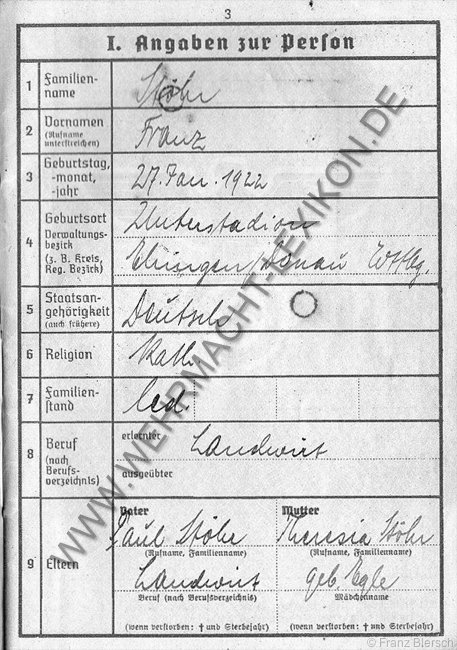 3
I. Angaben zur Person
1 Familien-
name
Stöhr
2 Vornamen
(Rufname
unterstreichen)
Franz
3 Geburtstag,
-monat,
-jahr
27. Jan. 1922
4 Geburtsort
Verwaltungs-
bezirk
(z. B. Kreis,
Reg. Bezirk)
Unterstadion
Ehingen/Donau Wttbg.
5 Staatsan-
gehörigkeit
(auch frühere)
Deutsch
6 Religion
kath.
7 Familien-
stand
led.
8 Beruf
(nach
Berufs-
verzeichnis)
erlernter
Landwirt
ausgeübter
9 Eltern
Vater
Paul Stöhr
(Rufname, Familienname)
Landwirt
Beruf (nach Berufsverzeichnis)
(wenn verstorben: † und Sterbejahr)
Mutter
Theresia Stöhr
(Rufname, Familienname)
geb. Egle
Mädchenname
(wenn verstorben: † und Sterbejahr)
WWW.WEHRMACHT-LEXIKON.DE
© Franz Biersch